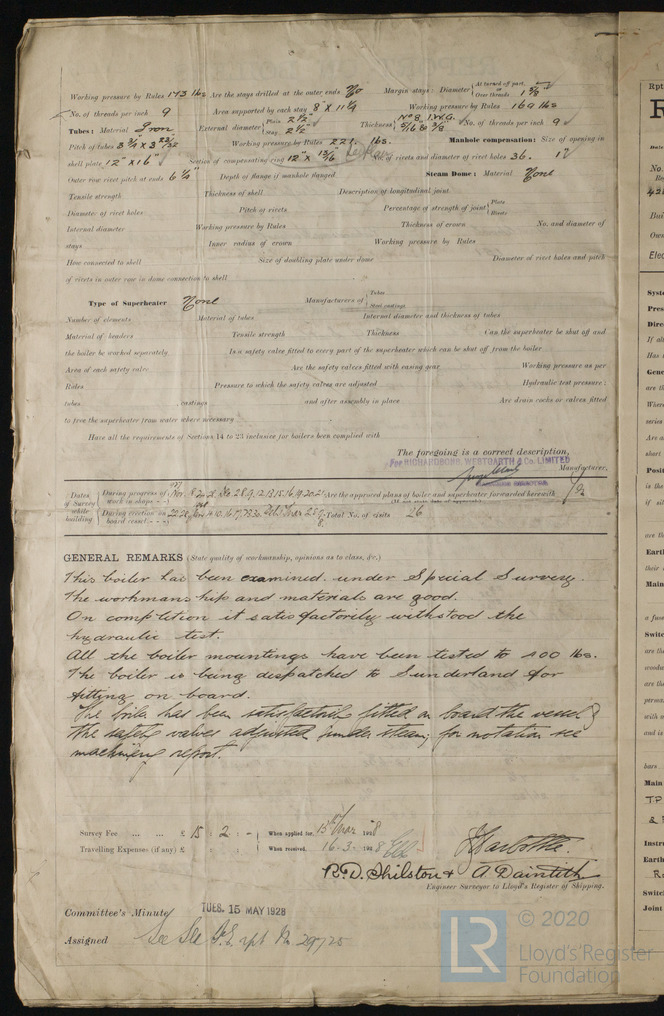 Working pressure by Rules 173 lbs Are the stays drilled at the outer ends No Margin stays: Diameter { At turned off part, or Over threads 1 5/8"
No. of threads per inch 9 Area supported by each stay 8" x 11 1/4 Working pressure by Rules 169 lbs
Tubes: Material Iron External diameter { Plain 2 1/2" Stay 2 1/2" Thickness { No 8 I.W.G. 5/16 & 3/8 No. of threads per inch 9
Pitch of tubes 3 3/4 x 3 23/32 Working pressure by Rules 229 lbs. Manhole compensation: Size of opening in
shell plate 12" x 16" Section of compensating ring 12" x 13/16 No. of rivets and diameter of rivet holes 36. 1"
Outer row rivet pitch at ends 6 1/4" Depth of flange if manhole flanged Steam Dome: Material None
Tensile strength Thickness of shell Description of longitudinal joint
Diameter of rivet holes Pitch of rivets Percentage of strength of joint { Plate Rivets
Internal diameter Working pressure by Rules Thickness of crown No. and diameter of
stays Inner radius of crown Working pressure by Rules
How connected to shell Size of doubling plate under dome Diameter of rivet holes and pitch
of rivets in outer row in dome connection to shell
Type of Superheater None Manufacturers of { Tubes Steel castings
Number of elements Material of tubes Internal diameter and thickness of tubes
Material of headers Tensile strength Thickness Can the superheater be shut off and
the boiler be worked separately Is a safety valve fitted to every part of the superheater which can be shut off from the boiler
Area of each safety valve Are the safety valves fitted with easing gear Working pressure as per
Rules Pressure to which the safety valves are adjusted Hydraulic test pressure:
tubes castings and after assembly in place Are drain cocks or valves fitted
to free the superheater from water where necessary
Have all the requirements of Sections 14 to 23 inclusive for boilers been complied with
The foregoing is a correct description,
For RICHARDSONS, WESTGARTH & Co. LIMITED
Manufacturer.
Dates of Survey while building { During progress of work in shops - - Nov. Are the approved plans of boiler and superheater forwarded herewith Yes
During erection on board vessel - - - Total No. of visits 26
GENERAL REMARKS (State quality of workmanship, opinions as to class, &c.)
This boiler has been examined under Special Survey.
The workmanship and materials are good.
On completion it satisfactorily withstood the
hydraulic test.
All the boiler mountings have been tested to 400 lbs.
The boiler is being despatched to Sunderland for
fitting on board.
The boiler has been satisfactorily fitted on board the vessel &
the safety valves adjusted under steam; for notation see
machinery report.
Survey Fee ... ... £ 15 : 2 : - When applied for, 13th Mar 1928
Travelling Expenses (if any) £ : : When received, 16.3.1928
R.D. Shilston & A. Dainteth
Engineer Surveyor to Lloyd's Register of Shipping.
Committee's Minute TUES. 15 MAY 1928
Assigned See F.E. rpt No 29720
© 2020
LR
Lloyd's Register
Foundation